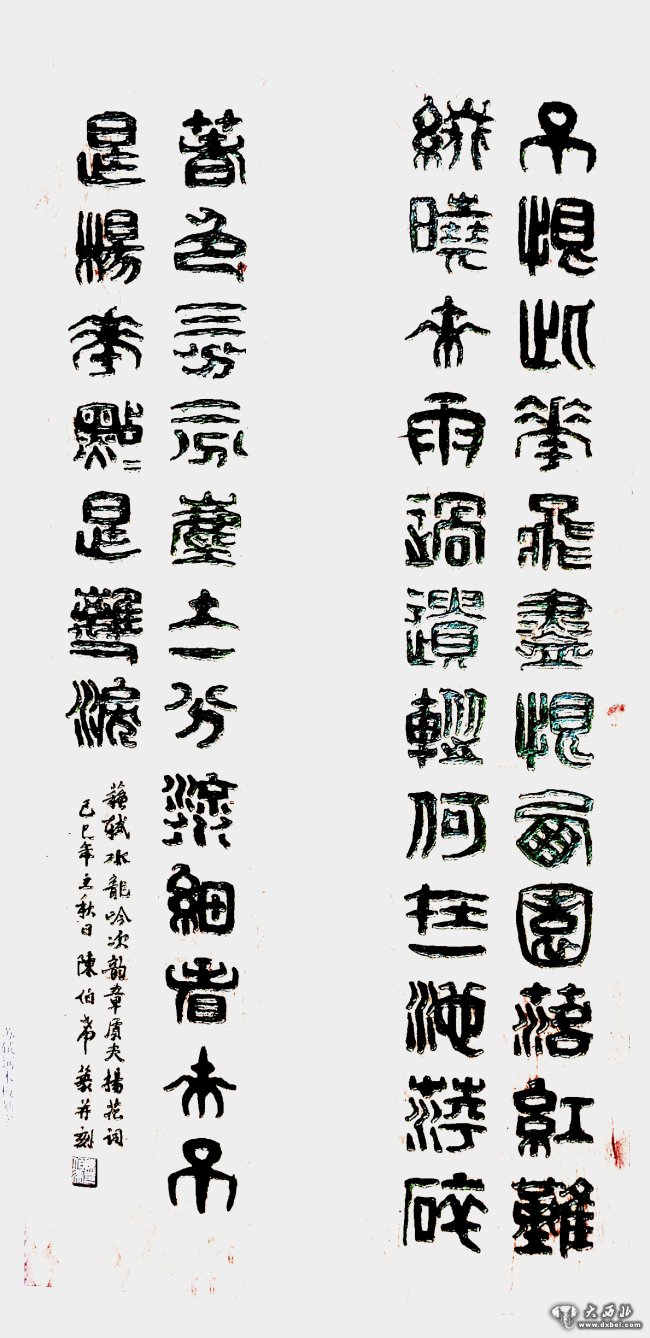 不恨此華飛盡恨西園落紅難
綴曉來雨過遺蹤何在一池萍碎
春色三分二分塵土一分流水細看來不
是楊華點點是離人淚
蘇軾水龍吟次韵章質夫楊花詞
己巳年立秋日陳伯希篆并刻
大西北
www.dxbei.com